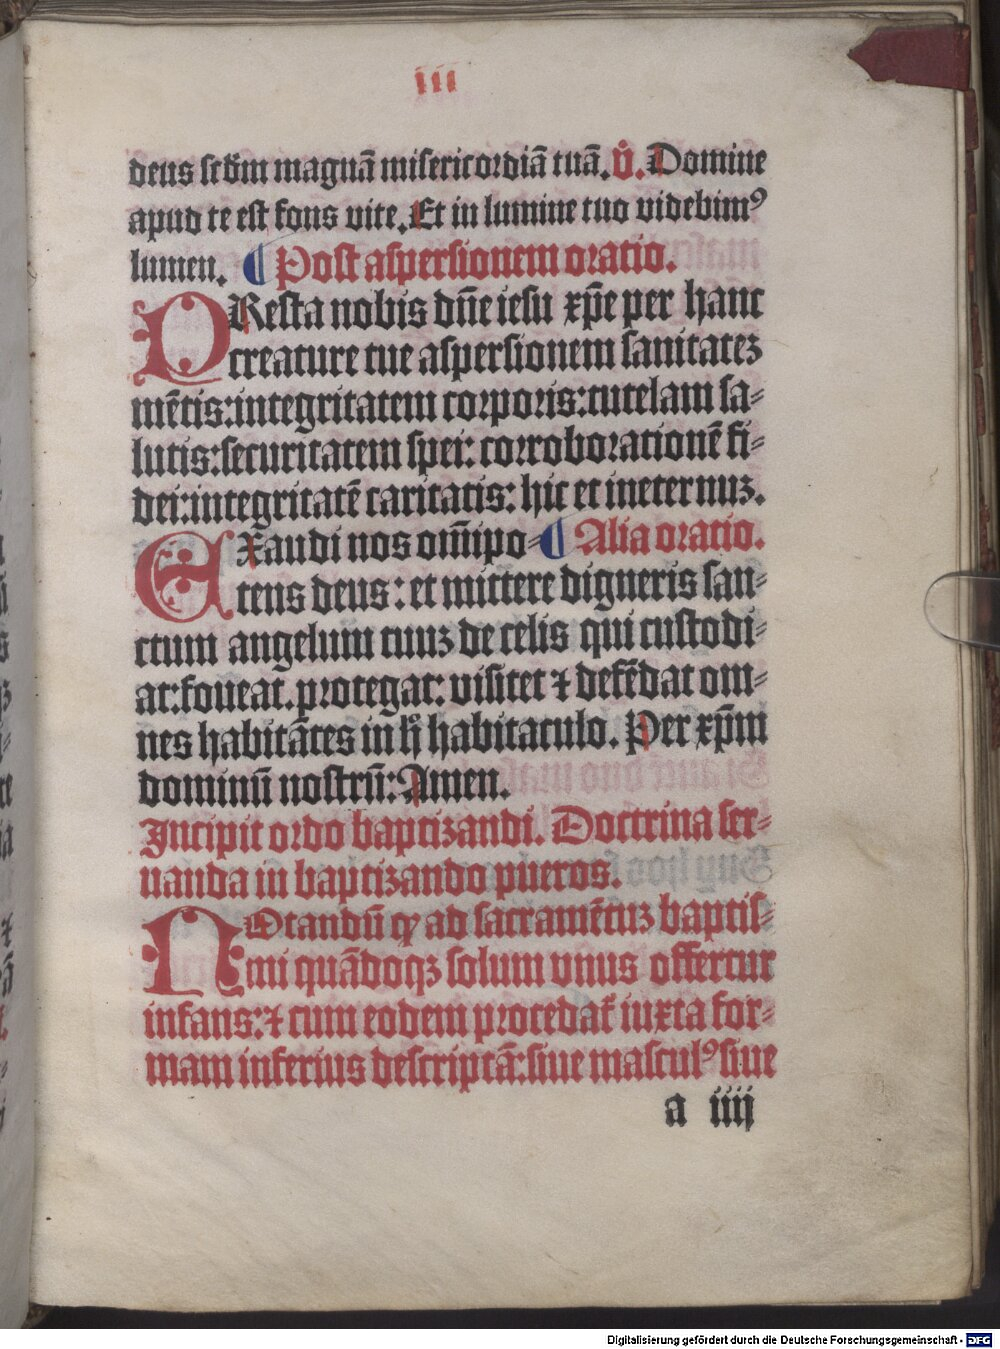 iii
deus scd̄m magnā misericordiā tuā. v̊. Domine
apud te est fons vite. Et in lumine tuo videbimꝰ
lumen. ¶ Post aspersionem oratio.
PResta nobis dn̄e iesu xp̄e per hanc
creature tue aspersionem sanitateꝫ
mētis: integritatem corporis: tutelam sa⸗
lutis: securitatem spei: corroborationē fi⸗
dei: integritatē caritatis: hic et ineternuꝫ.
EXaudi nos om̄ipo⸗ ¶ Alia oratio.
tens deus: et mittere digneris san⸗
ctum angelum tuuꝫ de celis qui custodi⸗
at: foveat. protegat: visitet ⁊ defēdat om⸗
nes habitātes in hͦ habitaculo. Per xp̄m
dominū nostrū: Amen.
Incipit ordo baptizandi. Doctrina ser⸗
uanda in baptizando pueros.
NOtandū ꝙ ad sacramētuꝫ baptis⸗
mi quādoqꝫ solum vnus offertur
infans: ⁊ cum eodem procedat᷑ iuxta for⸗
mam inferius descriptā: siue masculꝰ siue
a iiij
Digitalisierung gefördert durch die Deutsche Forschungsgemeinschaft - DFG